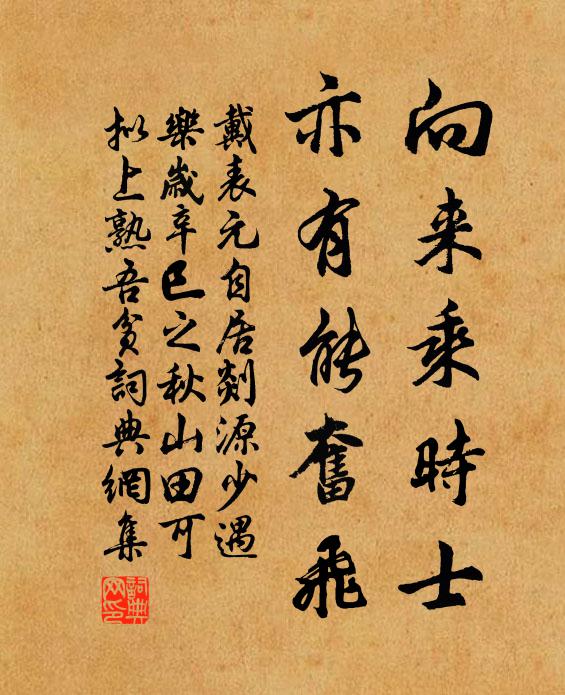 向来乘時士
亦有能奮飛
戴表元自居剡源少遇
樂歲辛巳之秋山田可
拟上熟吾貧詞典網集
詞典网印